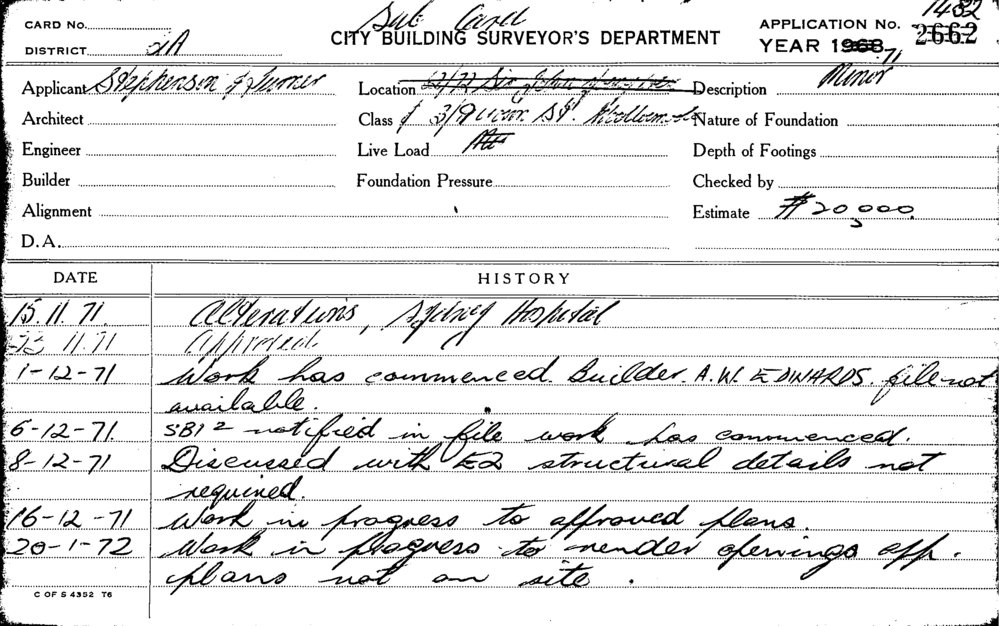 Sub Card
CARD No.
CITY BUILDING SURVEYOR'S DEPARTMENT
APPLICATION No. 1482 2662
DISTRICT
YEAR 1968. 71
Applicant Stephenson & Turner
Location
Description Minor
Architect
Class
Nature of Foundation
Engineer
Live Load
Depth of Footings
Builder
Foundation Pressure
Checked by
Alignment
Estimate $20,000
D.A.
DATE
HISTORY
15.11.71 Alterations, Sydney Hospital
23 11.71 Approved.
1-12-71 Work has commenced. Builder. A.W. EDWARDS. file not
available.
6-12-71. SB12 notified in file work has commenced.
8-12-71 Discussed with E2 structural details not
required.
16-12-71 Work in progress to approved plans.
20-1-72 Work in progress to render openings app.
plans not on site.
C OF S 4352 T6